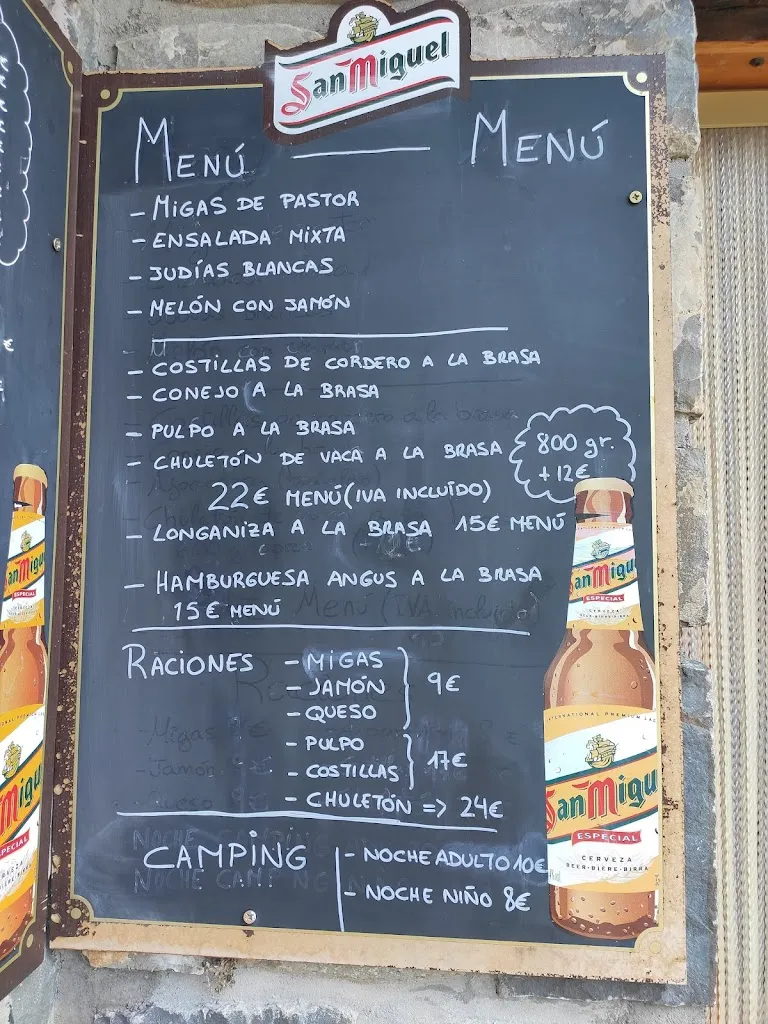 San Miguel
MENÚ MENÚ
- MIGAS DE PASTOR
- ENSALADA MIXTA
- JUDÍAS BLANCAS
- MELÓN CON JAMÓN
- COSTILLAS DE CORDERO A LA BRASA
- CONEJO A LA BRASA
- PULPO A LA BRASA
- CHULETÓN DE VACA A LA BRASA
800 gr.
+ 12€
22€ MENÚ (IVA INCLUÍDO)
- LONGANIZA A LA BRASA 15€ MENÚ
- HAMBURGUESA ANGUS A LA BRASA
15€ MENÚ
RACIONES - MIGAS
- JAMÓN 9€
- QUESO
- PULPO
- COSTILLAS 17€
- CHULETÓN => 24€
CAMPING - NOCHE ADULTO 10€
- NOCHE NIÑO 8€
San Migu
ESPECIAL
CERVEZA
San Migu
ESPECIAL
CERVEZA
BEER·BIERE·BIRRA